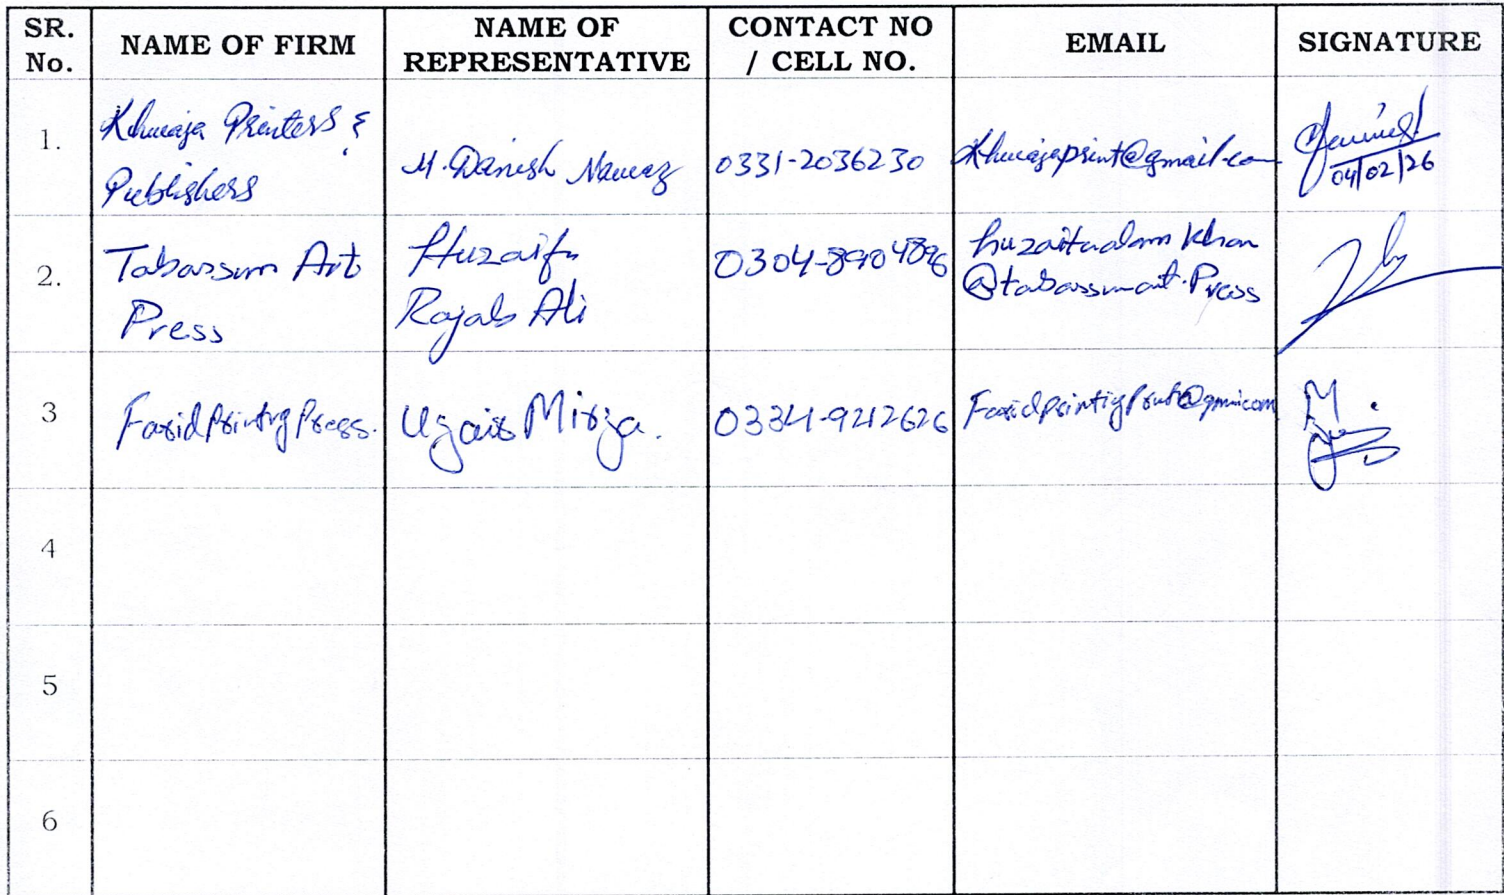 SR. No. NAME OF FIRM NAME OF REPRESENTATIVE CONTACT NO / CELL NO. EMAIL SIGNATURE
1.
Khuwaja Printers &
Publishers
M. Danish Nawaz
0331-2036230
Khuwajaprint@gmail.com
04/02/26
2.
Tabassum Art
Press
Huzaifa
Rajab Ali
0304-8904896
@tabassumart.Press
3
Farid Printing Press.
Uzair Mirza.
0334-9212626
4
5
6